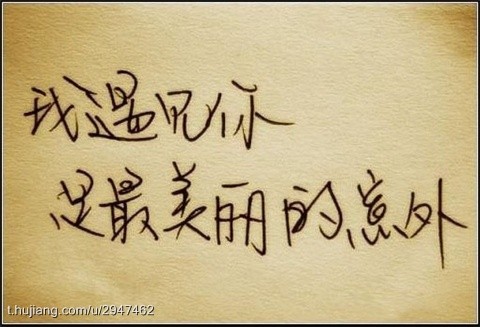 我遇见你
是最美丽的意外
t.hujiang.com/u/2947462